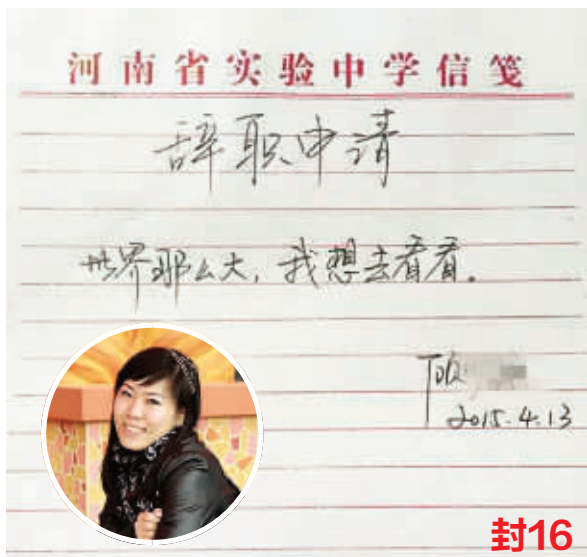 河南省实验中学信笺
辞职申请
世界那么大，我想去看看。
顾
2015.4.13
封16